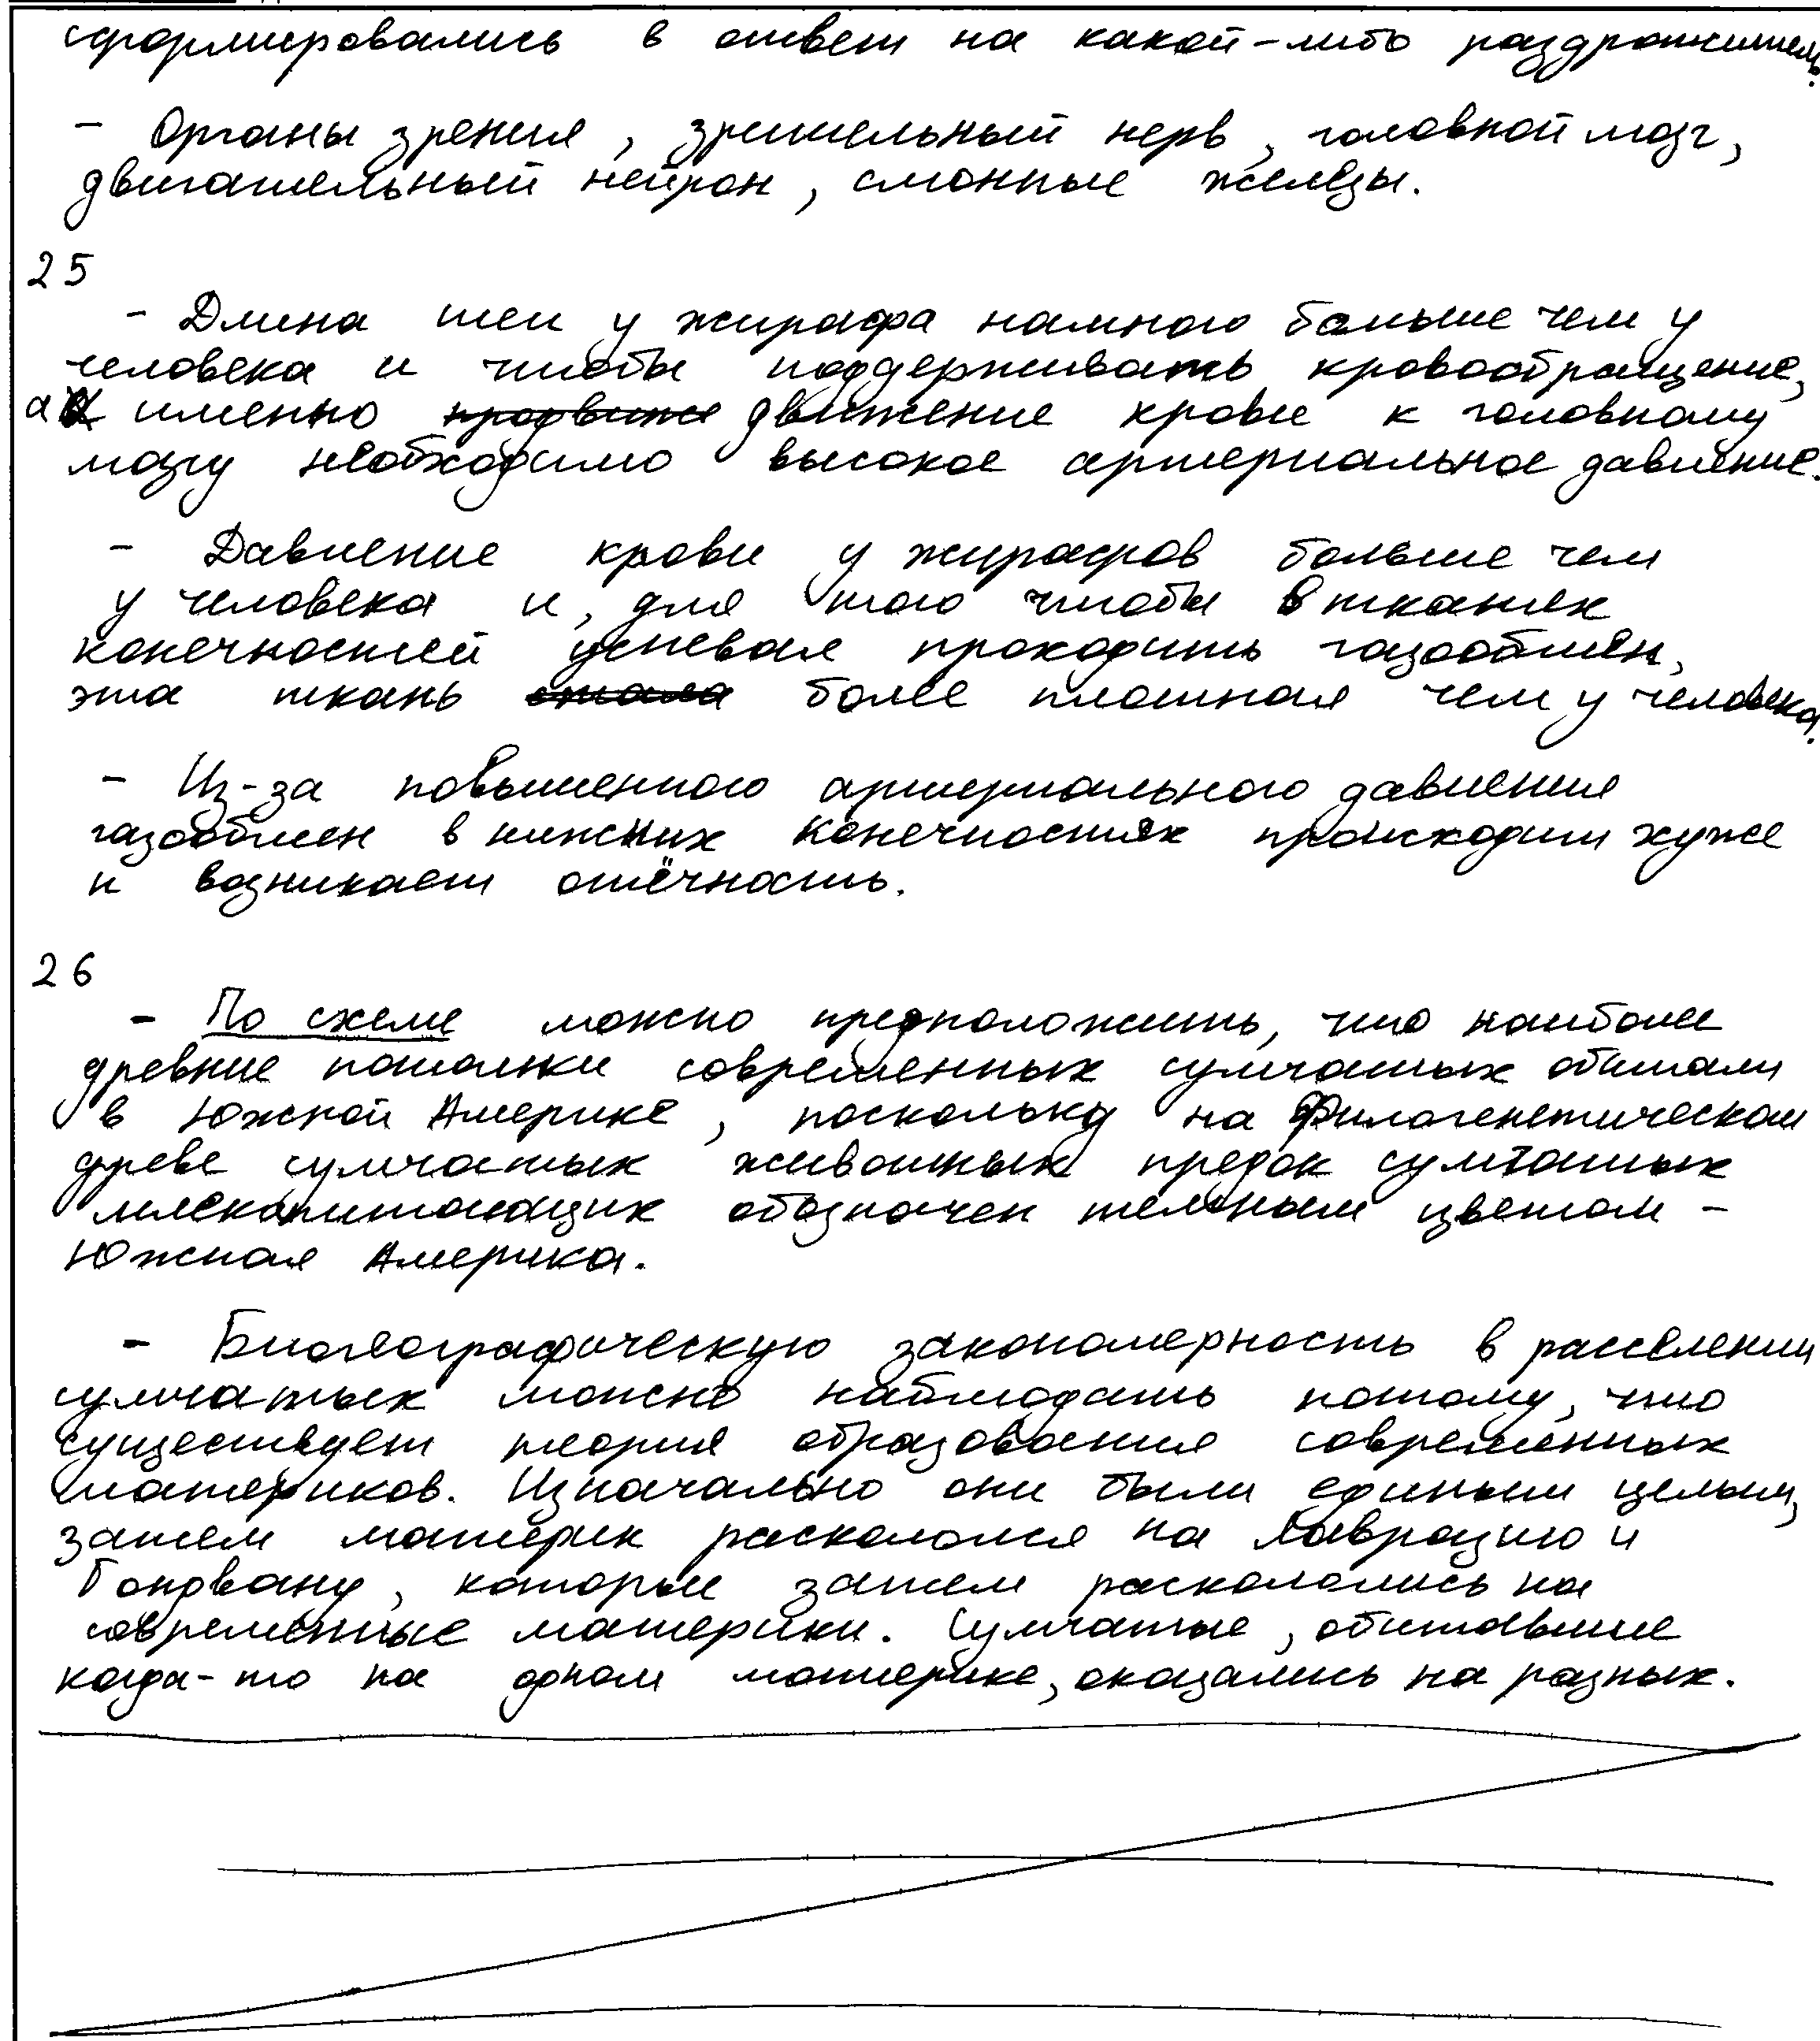 сформировались в ответ на какой-либо раздражитель.
- Органы зрения, зрительный нерв, головной мозг,
двигательный нейрон, слюнные железы.
25
- Длина шеи у жирафа намного больше чем у
человека и чтобы поддерживать кровообращение,
а именно движение крови к головному
мозгу необходимо высокое артериальное давление.
- Давление крови у жирафов больше чем
у человека и, для того чтобы в тканях
конечностей успевал проходить газообмен,
эта ткань более плотная чем у человека.
- Из-за повышенного артериального давления
газообмен в нижних конечностях происходит хуже
и возникает отёчность.
26
- По схеме можно предположить, что наиболее
древние потомки современных сумчатых обитали
в Южной Америке, поскольку на Филогенетическом
древе сумчатых животных предок сумчатых
млекопитающих обозначен темным цветом -
Южная Америка.
- Биогеографическую закономерность в расселении
сумчатых можно наблюдать потому, что
существует теория образования современных
материков. Изначально они были единым целым,
затем материк раскололся на Лавразию и
Гондвану, которые затем раскололись на
современные материки. Сумчатые, обитавшие
когда-то на одном материке, оказались на разных.